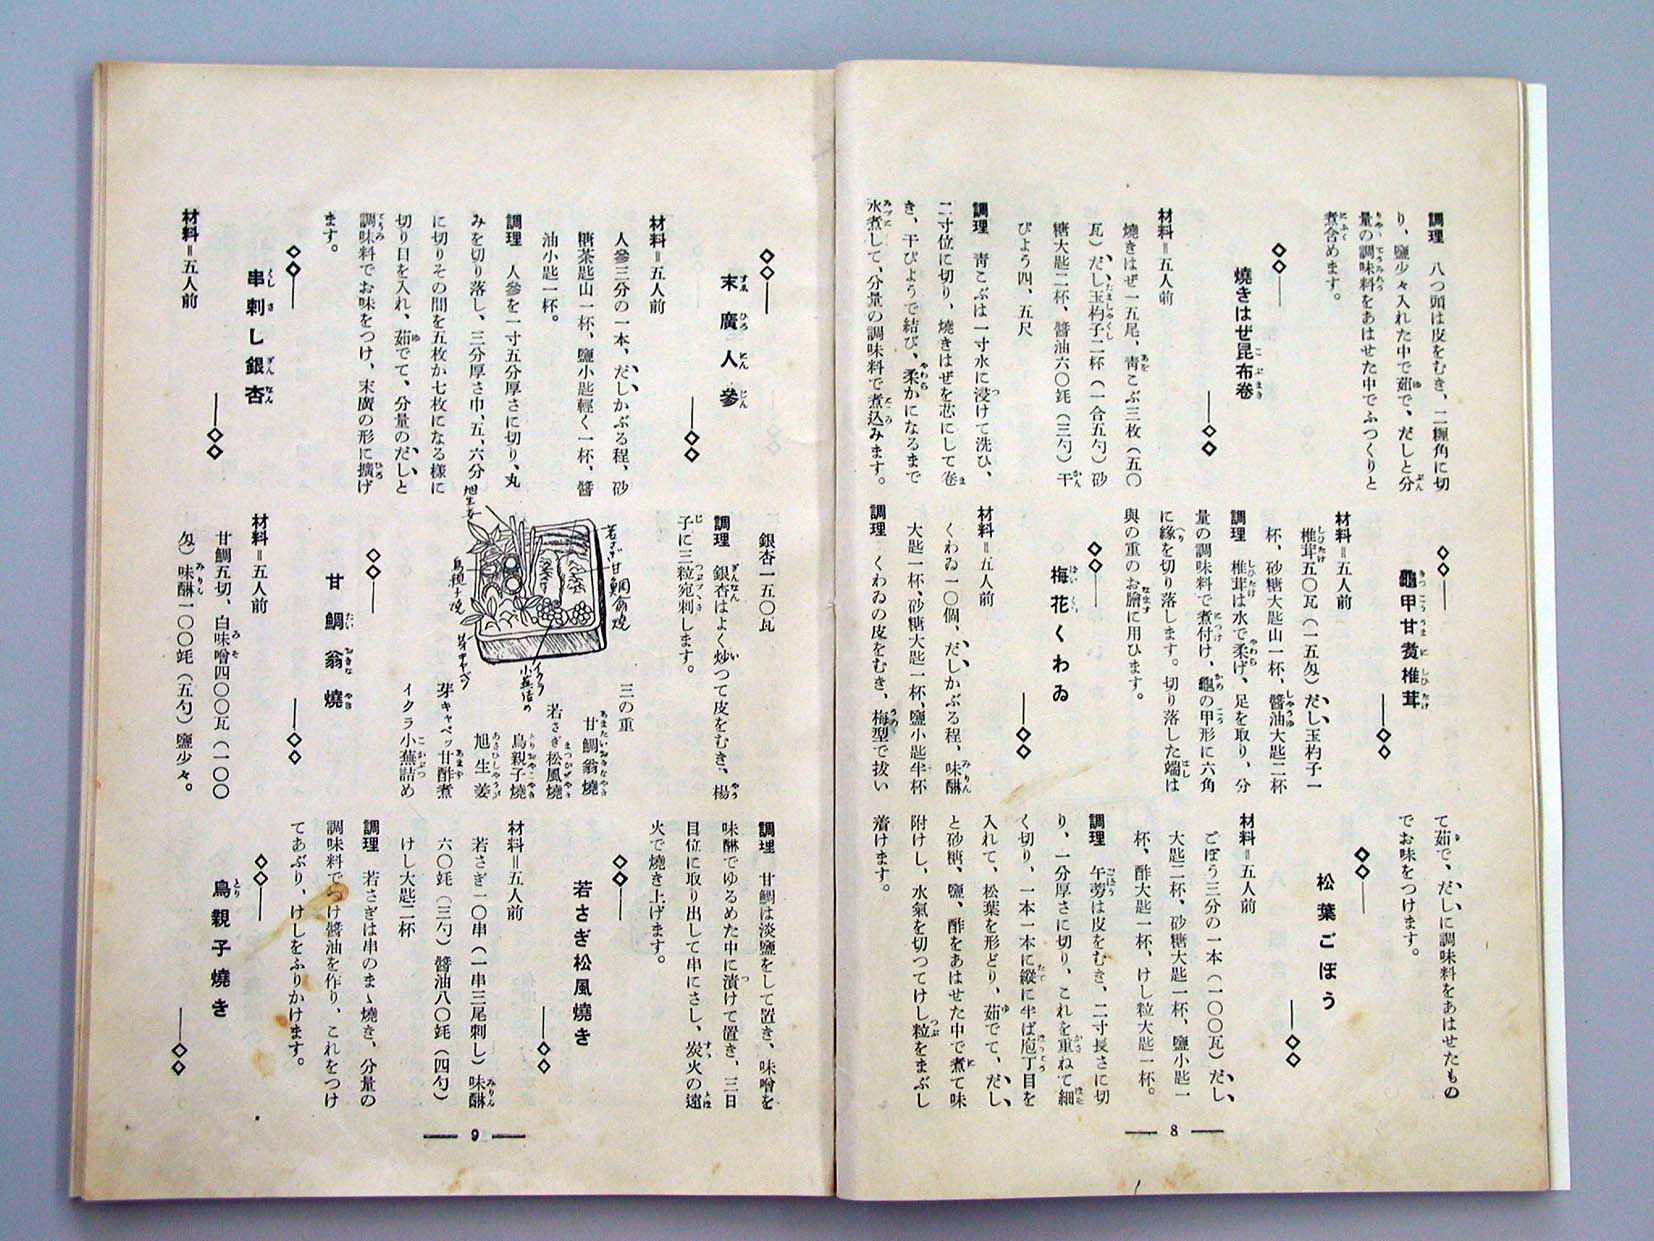 調理　八つ頭は皮をむき、二糎角に切
り、鹽少々入れた中で茹で、だしと分
量の調味料をあはせた中でふつくりと
煮含めます。
燒きはぜ昆布卷
材料＝五人前
燒きはぜ一五尾、靑こぶ三枚（五〇
瓦）だし玉杓子二杯（一合五勺）砂
糖大匙二杯、醬油六〇竓（三勺）干
ぴょう四、五尺
調理　靑こぶは一寸水に浸けて洗ひ、
二寸位に切り、燒きはぜを芯にして卷
き、干ぴょうで結び、柔かになるまで
水煮して、分量の調味料で煮込みます。
龜甲甘煑椎茸
材料＝五人前
椎茸五〇瓦（一五匁）だし玉杓子一
杯、砂糖大匙山一杯、醬油大匙二杯
調理　椎茸は水で柔げ、足を取り、分
量の調味料で煮付け、龜の甲形に六角
に緣を切り落します。切り落した端は
與の重のお膾に用ひます。
梅花くわゐ
材料＝五人前
くわゐ一〇個、だしかぶる程、味醂
大匙一杯、砂糖大匙一杯、鹽小匙半杯
調理　くわゐの皮をむき、梅型で拔い
て茹で、だしに調味料をあはせたもの
でお味をつけます。
松葉ごぼう
材料＝五人前
ごぼう三分の一本（一〇〇瓦）だし
大匙二杯、砂糖大匙一杯、鹽小匙一
杯、酢大匙一杯、けし粒大匙一杯。
調理　午蒡は皮をむき、二寸長さに切
り、一分厚さに切り、これを重ねて細
く切り、一本一本に縱に半ば庖丁目を
入れて、松葉を形どり、茹でて、だし
と砂糖、鹽、酢をあはせた中で煮て味
附けし、水氣を切つてけし粒をまぶし
着けます。
8
末廣人參
材料＝五人前
人參三分の一本、だしかぶる程、砂
糖茶匙山一杯、鹽小匙輕く一杯、醬
油小匙一杯。
調理　人參を一寸五分厚さに切り、丸
みを切り落し、三分厚さ巾、五、六分
に切りその間を五枚か七枚になる樣に
切り目を入れ、茹でて、分量のだしと
調味料でお味をつけ、末廣の形に擴げ
ます。
串刺し銀杏
材料＝五人前
銀杏一五〇瓦
調理　銀杏はよく炒つて皮をむき、楊
子に三粒宛刺します。
若さぎ
甘鯛翁燒
旭生姜
鳥親子燒
芽キャベツ
イクラ
小蕪詰め
三の重
甘鯛翁燒
若さぎ松風燒
鳥親子燒
旭生姜
芽キャベツ甘酢煮
イクラ小蕪詰め
甘鯛翁燒
材料＝五人前
甘鯛五切、白味噌四〇〇瓦（一〇〇
匁）味醂一〇〇竓（五勺）鹽少々。
調理　甘鯛は淡鹽をして置き、味噌を
味醂でゆるめた中に漬けて置き、三日
目位に取り出して串にさし、炭火の遠
火で燒き上げます。
若さぎ松風燒き
材料＝五人前
若さぎ一〇串（一串三尾刺し）味醂
六〇竓（三勺）醬油八〇竓（四勺）
けし大匙二杯
調理　若さぎは串のまゝ燒き、分量の
調味料でつけ醬油を作り、これをつけ
てあぶり、けしをふりかけます。
鳥親子燒き
9